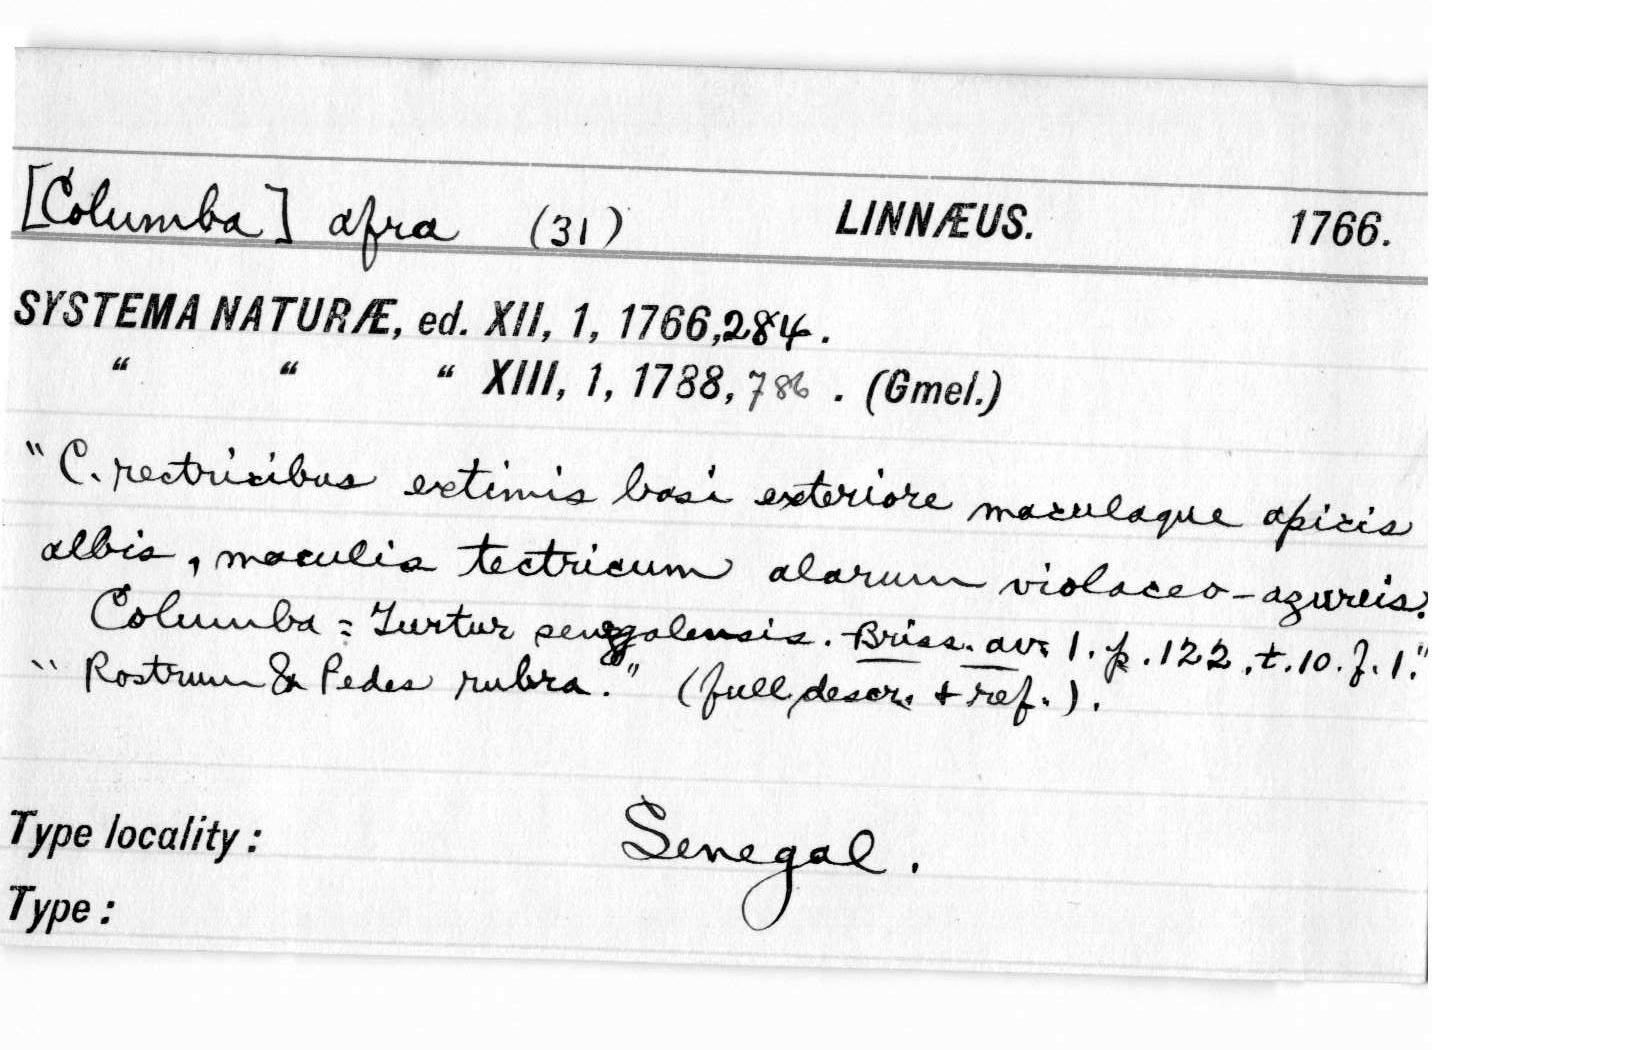 [Columba] afra (31) LINNÆUS. 1766.
SYSTEMA NATURÆ, ed. XII, 1, 1766, 284.
“ “ “ XIII, 1, 1788, 786. (Gmel.)
"C. rectricibus extimis basi exteriore maculaque apicis
albis, maculis tectricum alarum violaceo-azureis.
Columba = Turtur senegalensis. Briss. av. 1. p. 122. t. 10. f. 1."
"Rostrum & Pedes rubra." (full descr. + ref.).
Type locality: Senegal.
Type: